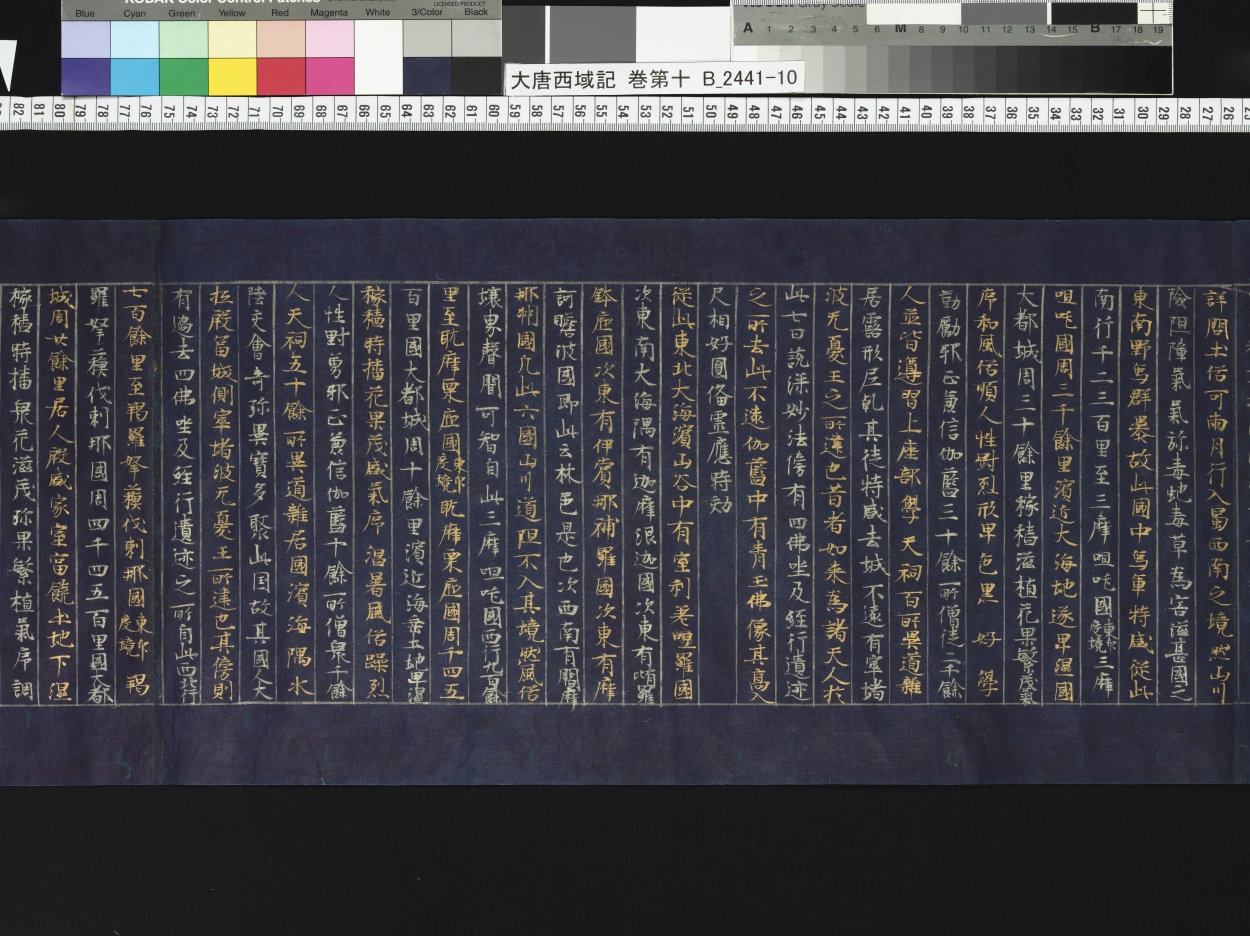 KODAK Color Control Patches
LICENSED PRODUCT
Blue Cyan Green Yellow Red Magenta White 3/Color Black
A 1 2 3 4 5 6 M 8 9 10 11 12 13 14 15 B 17 18 19
大唐西域記 巻第十 B_2441-10
82 81 80 79 78 77 76 75 74 73 72 71 70 69 68 67 66 65 64 63 62 61 60 59 58 57 56 55 54 53 52 51 50 49 48 47 46 45 44 43 42 41 40 39 38 37 36 35 34 33 32 31 30 29 28 27 26
詳問土俗可兩月行入蜀西南之境然山川
險阻障氣氣弥毒虵毒草為害滋甚國之
東南野象群暴故此國中象軍特盛從此
南行千二三百里至三摩呾吒國東印度境三摩
呾吒國周三千餘里濱近大海地遂卑濕國
大都城周三十餘里稼穡滋植花果繁茂氣
序和風俗順人性對烈形卑色黒好學
勤勵邪正兼信伽藍三十餘所僧徒二千餘
人並皆遵習上座部學天祠百所異道雜
居露形尼乾其徒特盛去城不遠有窣堵
波无憂王之所建也昔者如来為諸天人於
此七日說深妙法傍有四佛坐及經行遺迹
之所去此不遠伽藍中有青玉佛像其高八
尺相好圓俻靈應時効
從此東北大海濱山谷中有室利差呾羅國
次東南大海隅有迦摩浪迦國次東有墮羅
鉢底國次東有伊賞那補羅國次東有摩
訶瞻波國即此云林邑是也次西南有閻摩
那洲國凡此六國山川道阻不入其境然風俗
壤界聲聞可智自此三摩呾吒國西行九百餘
里至耽摩栗底國東印度境耽摩栗底國周千四五
百里國大都城周十餘里濱近海垂土地卑濕
稼穡特播花果茂盛氣序温暑風俗躁烈
人性對勇邪正兼信伽藍十餘所僧衆千餘
人天祠五十餘所異道雜居國濱海隅水
陸交會奇弥異寶多聚此国故其國人大
扺殷冨城側窣堵波无憂王所建也其傍則
有過去四佛坐及經行遺迹之所自此西北行
七百餘里至羯羅拏蘓伐剌那國東印度境羯
羅拏蘓伐剌那國周四千四五百里國大都
城周廿餘里居人殷盛家室富饒土地下濕
稼穡時播衆花滋茂弥果繁植氣序調